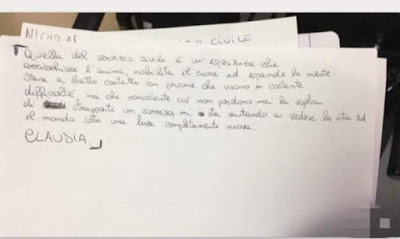 NICHOLAS
CIVILE
Quella del servizio civile é un'esperienza che
arricchisce l'anima, nobilita il cuore ed espande la mente
Stare a stretto contatto con persone che vivono in costante
difficoltà ma che nonostante ciò non perdono mai la voglia
di strapparti un sorriso, mi sta aiutando a vedere la vita ed
il mondo sotto una luce completamente nuova.
CLAUDIA.